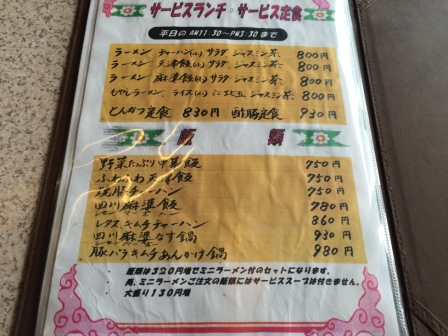 サービスランチ・サービス定食
平日のAM11:30～PM3:30まで
ラーメン チャーハン(小) サラダ ジャスミン茶 800円
ラーメン 天津飯(小) サラダ ジャスミン茶 800円
ラーメン 麻婆飯(小) サラダ ジャスミン茶 800円
もやしラーメン ライス(小) ミニ ジャスミン茶 800円
とんかつ定食 830円 酢豚定食 930円
飯類
野菜たっぷり中華飯 750円
ふわふわ天津飯 750円
焼豚チャーハン 750円
四川麻婆飯 780円
レタスキムチチャーハン 860円
四川麻婆なす鍋 930円
豚バラキムチあんかけ鍋 980円
飯類は320円増でミニラーメン付のセットになります。
尚、ミニラーメンご注文の飯類にはサービススープは付きません。
大盛り130円増